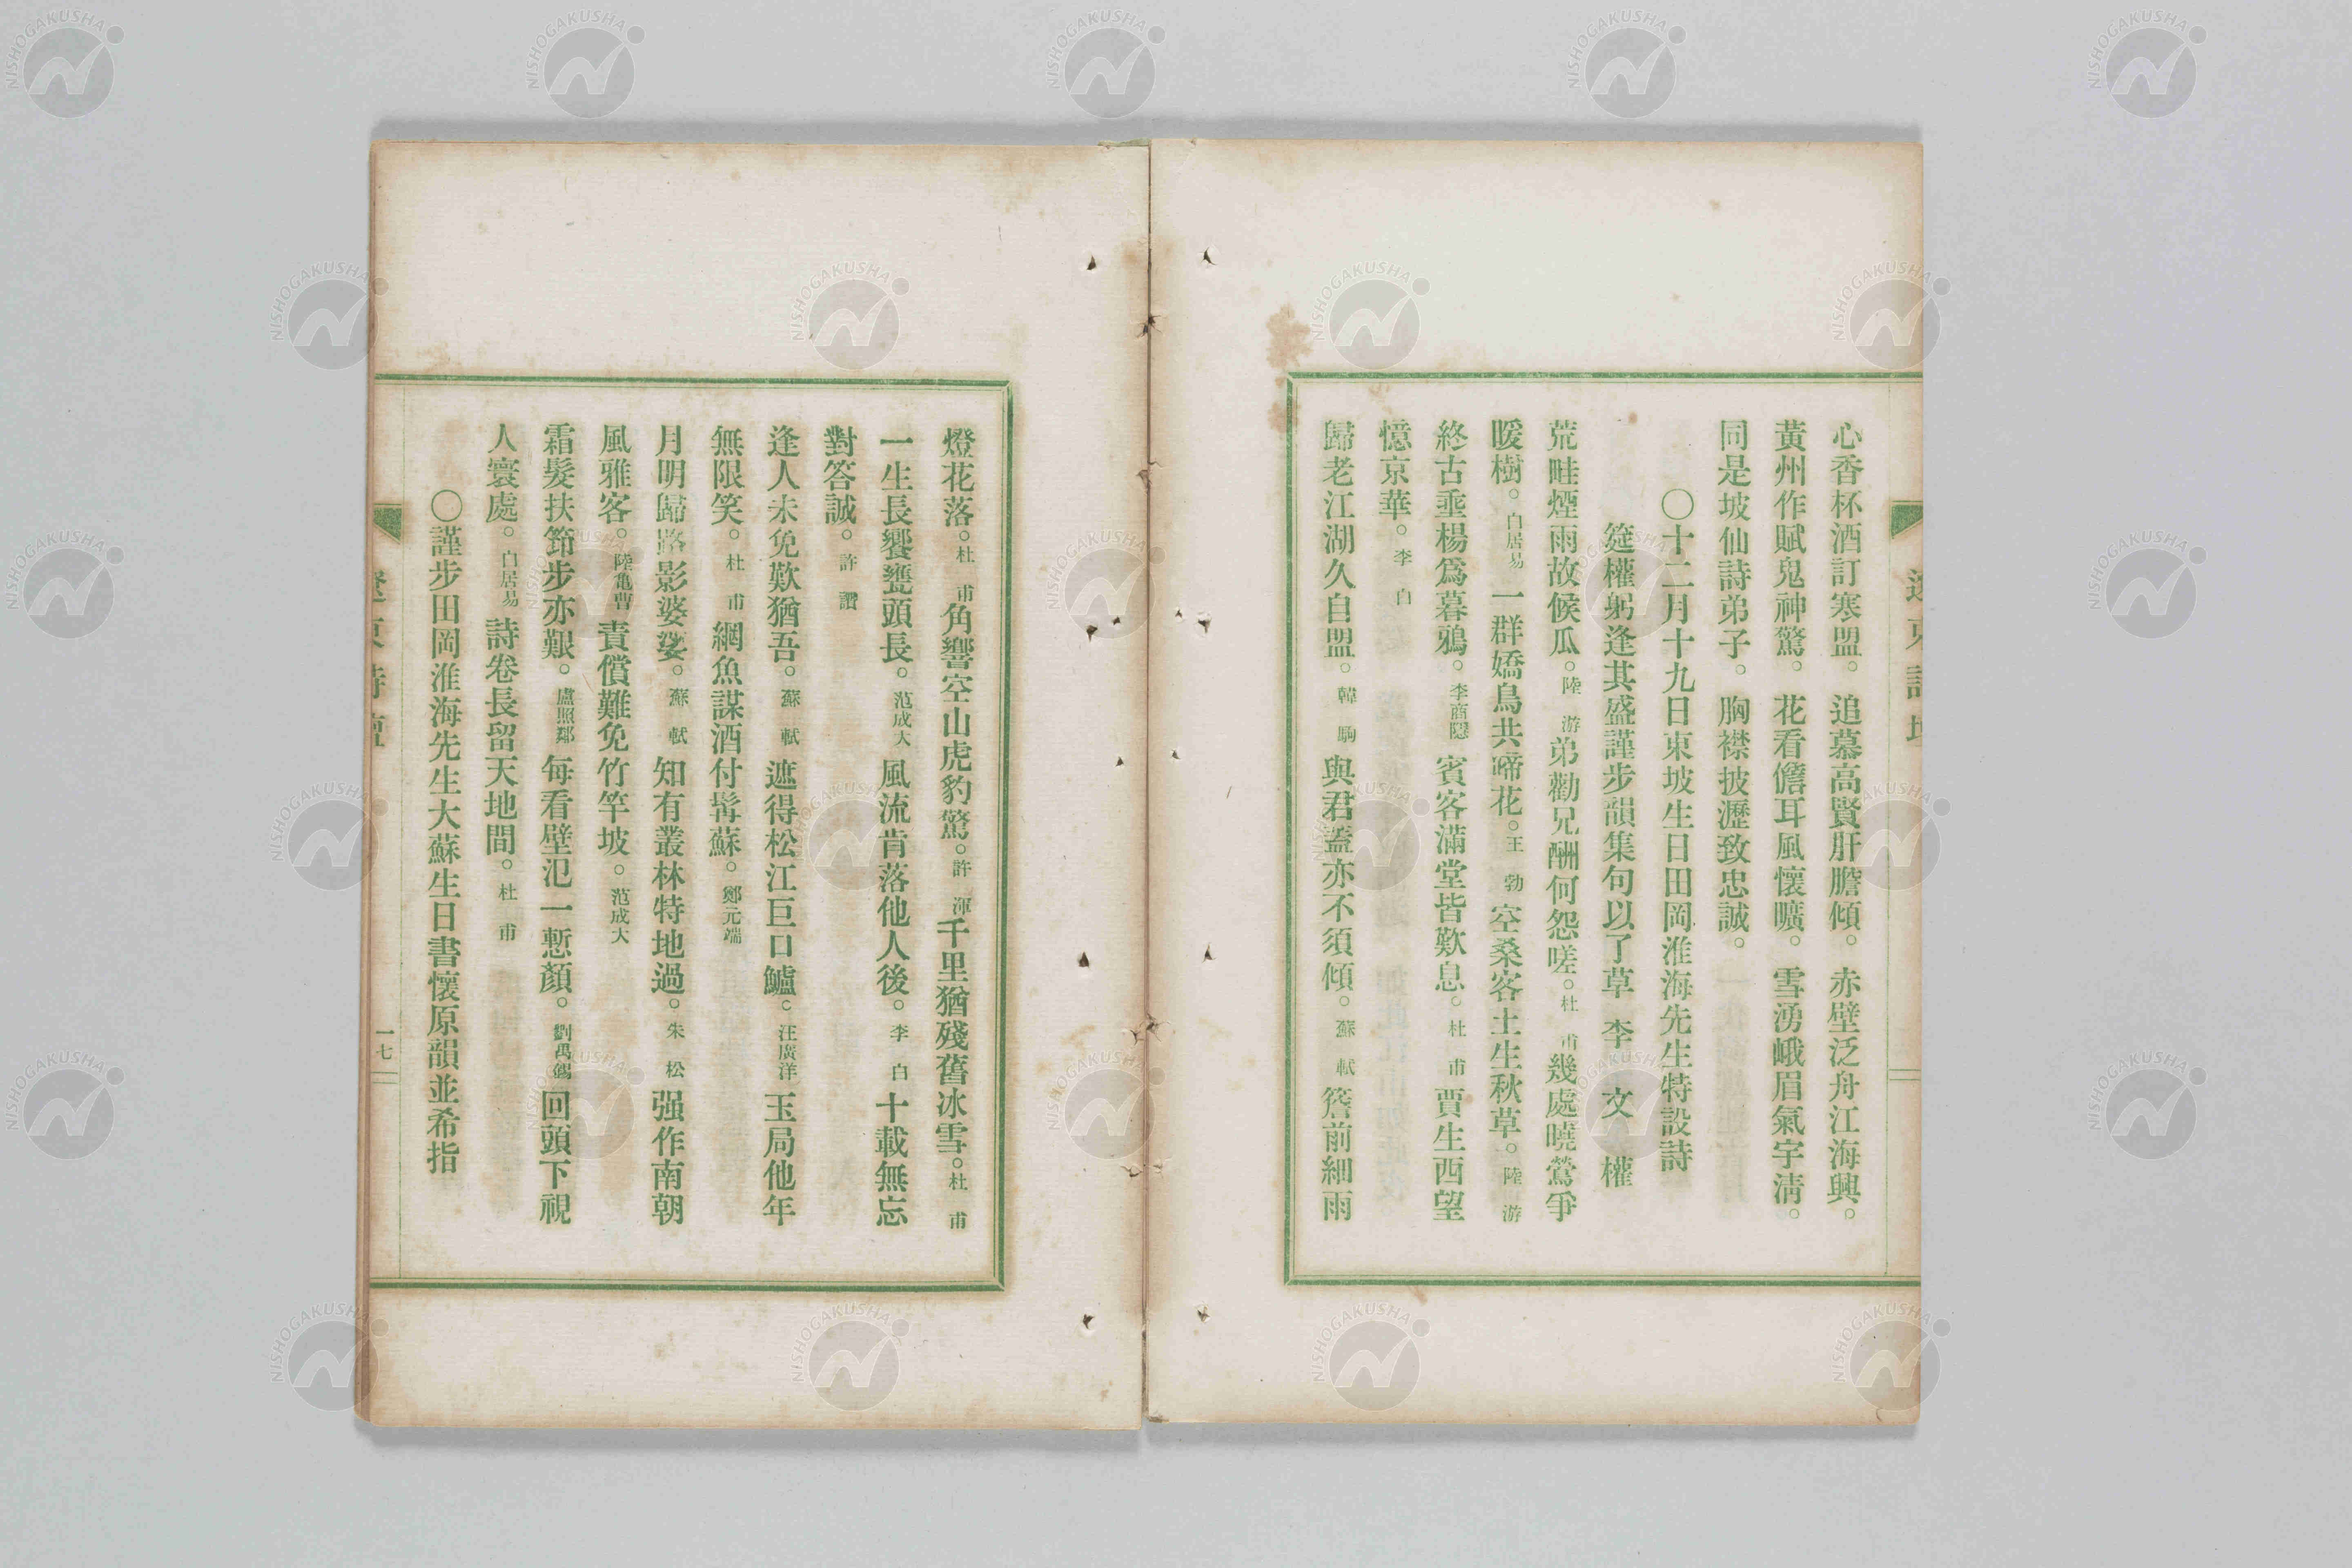 心香杯酒訂寒盟。追慕高賢肝膽傾。赤壁泛舟江海興。
黃州作賦鬼神驚。花看儋耳風懷曠。雪湧峨眉氣宇淸。
同是坡仙詩弟子。胸襟披瀝致忠誠。
〇十二月十九日東坡生日田岡淮海先生特設詩
筵權躬逢其盛謹步韻集句以了草 李文權
荒畦煙雨故候瓜。陸游 弟勸兄酬何怨嗟。杜甫 幾處曉鶯爭
暖樹。白居易 一群嬌鳥共啼花。王勃 空桑客土生秋草。陸游
終古垂楊爲暮鴉。李商隱 賓客滿堂皆歎息。杜甫 賈生西望
憶京華。李白
歸老江湖久自盟。韓駒 與君蓋亦不須傾。蘇軾 簷前細雨
燈花落。杜甫 角響空山虎豹驚。許渾 千里猶殘舊冰雪。杜甫
一生長饗甕頭長。范成大 風流肯落他人後。李白 十載無忘
對答誠。許讚
逢人未免歎猶吾。蘇軾 遮得松江巨口鱸。汪廣洋 玉局他年
無限笑。杜甫 網魚謀酒付髯蘇。鄭元端
月明歸路影婆娑。蘇軾 知有叢林特地過。朱松 强作南朝
風雅客。陸龜曹 責償難免竹竿坡。范成大
霜髮扶節步亦艱。盧照鄰 每看壁氾一慙顏。劉禹錫 回頭下視
人寰處。白居易 詩卷長留天地間。杜甫
〇謹步田岡淮海先生大蘇生日書懷原韻並希指
一七
NISHOGAKUSHA